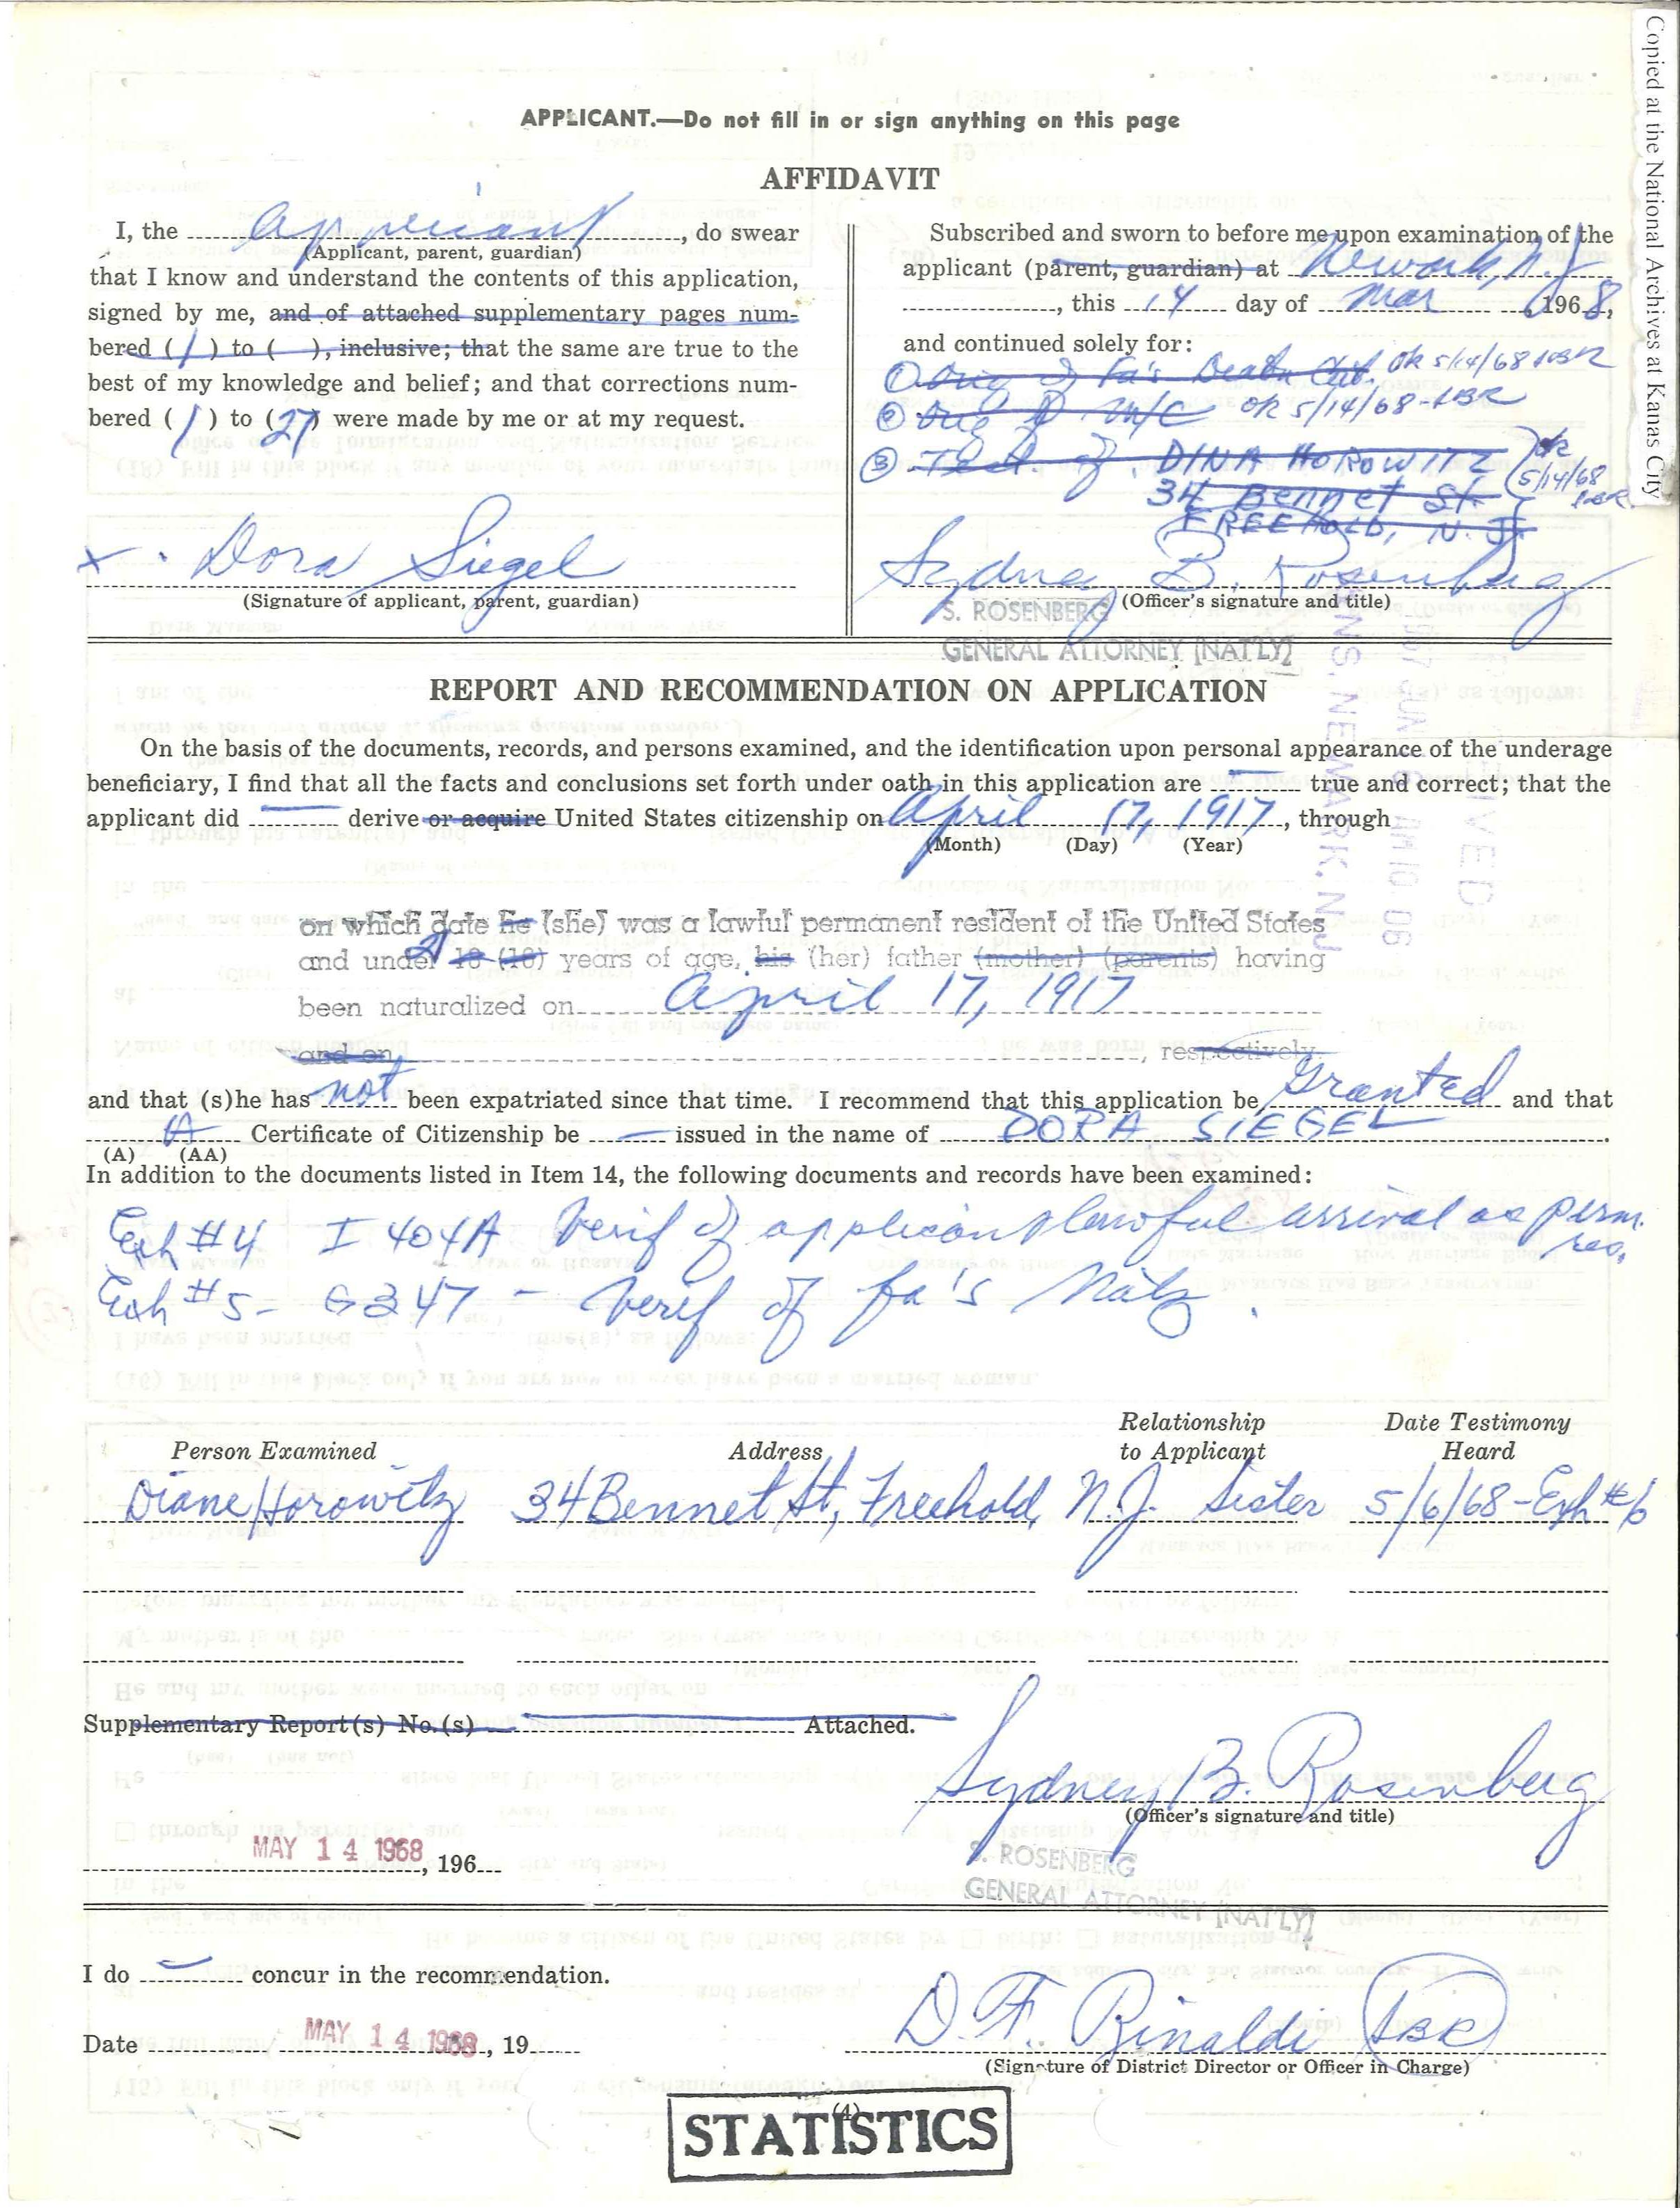 Copied at the National Archives at Kanas City
APPLICANT.—Do not fill in or sign anything on this page
AFFIDAVIT
I, the Applicant, do swear
(Applicant, parent, guardian)
that I know and understand the contents of this application,
signed by me, and of attached supplementary pages num-
bered ( / ) to ( ), inclusive; that the same are true to the
best of my knowledge and belief; and that corrections num-
bered ( 1 ) to (27) were made by me or at my request.
x Dora Siegel
(Signature of applicant, parent, guardian)
Subscribed and sworn to before me upon examination of the
applicant (parent, guardian) at Newark, N.J.
, this 14 day of Mar, 1968,
and continued solely for:
① Orig of Fa's Death Cert ok 5/14/68 SBR
② Orig of M/C ok 5/14/68 - SBR
③ Test of DINA HOROWITZ ok
34 Bennet St. 5/14/68
FREEHOLD, N.J. SBR
Sydney B. Rosenberg
(Officer's signature and title)
S. ROSENBERG
GENERAL ATTORNEY [NAT'LY]
REPORT AND RECOMMENDATION ON APPLICATION
On the basis of the documents, records, and persons examined, and the identification upon personal appearance of the underage
beneficiary, I find that all the facts and conclusions set forth under oath in this application are — true and correct; that the
applicant did — derive or acquire United States citizenship on April 17, 1917, through
(Month) (Day) (Year)
on which date he (she) was a lawful permanent resident of the United States
and under 21 18 (16) years of age, his (her) father (mother) (parents) having
been naturalized on April 17, 1917
and on , respectively.
and that (s)he has not been expatriated since that time. I recommend that this application be Granted and that
A Certificate of Citizenship be — issued in the name of DORA SIEGEL.
(A) (AA)
In addition to the documents listed in Item 14, the following documents and records have been examined:
Exh #4 I 404A Verif of applicants lawful arrival as perm.
res.
Exh #5 - G347 - Verif of fa's Natz.
Relationship Date Testimony
Person Examined Address to Applicant Heard
Diane Horowitz 34 Bennet St, Freehold, N.J. Sister 5/6/68 - Exh #6
Supplementary Report(s) No.(s) Attached.
Sydney B. Rosenberg
(Officer's signature and title)
MAY 14 1968, 196
S. ROSENBERG
GENERAL ATTORNEY [NAT'LY]
I do — concur in the recommendation.
D. F. Rinaldi SBR
Date MAY 14 1968, 19
(Signature of District Director or Officer in Charge)
(4)
STATISTICS